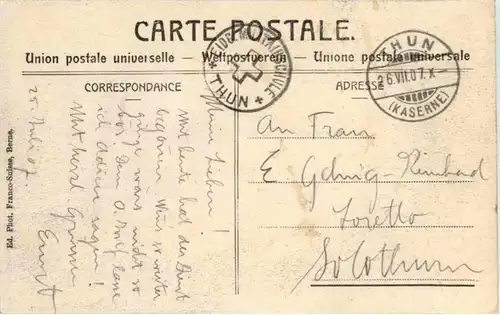 CARTE POSTALE.
Union postale universelle — Weltpostverein — Unione postale universale
CORRESPONDANCE
ADRESSE
EIDG.
THUN
THUN
26.VII.07.X–
(KASERNE)
Ed. Phot. Franco-Suisse, Berne.
25. Juli 07.
Mein Lieber!
Mit heute hat der Dienst
begonnen
nicht so
bös! Den
ich adieu sagen!
Mit herzl. Grüssen
Ernst
An Frau
E Gehrig-Reinhard
Loretto
Solothurn